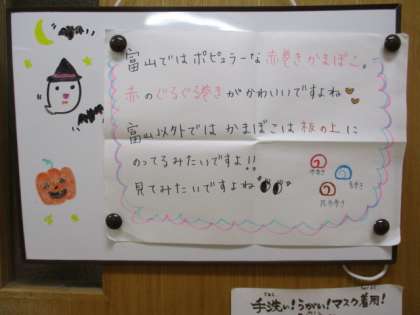 富山ではポピュラーな赤巻きかまぼこ。
赤のぐるぐる巻きがかわいいですよね
富山以外では かまぼこは 板の上に
のってるみたいですよ!!
見てみたいですよね
赤巻き
手洗い!うがい!マスク着用!